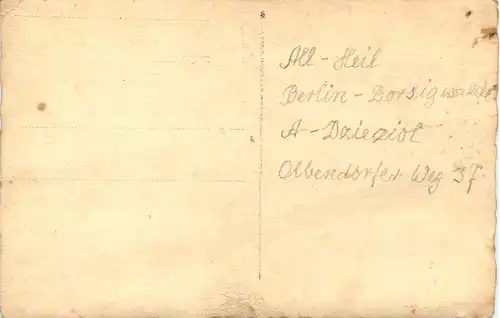 All-Heil
Berlin-Borsigwalde
A-Dzieziol
Olbendorfer Weg 37